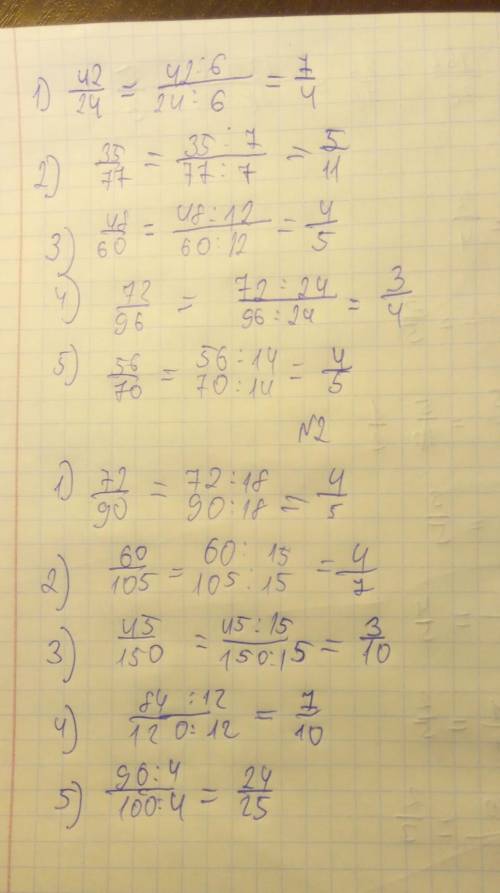 1) 42/24 = 42:6/24:6 = 7/4
2) 35/77 = 35:7/77:7 = 5/11
3) 48/60 = 48:12/60:12 = 4/5
4) 72/96 = 72:24/96:24 = 3/4
5) 56/70 = 56:14/70:14 = 4/5
№2
1) 72/90 = 72:18/90:18 = 4/5
2) 60/105 = 60:15/105:15 = 4/7
3) 45/150 = 45:15/150:15 = 3/10
4) 84:12/120:12 = 7/10
5) 96:4/100:4 = 24/25